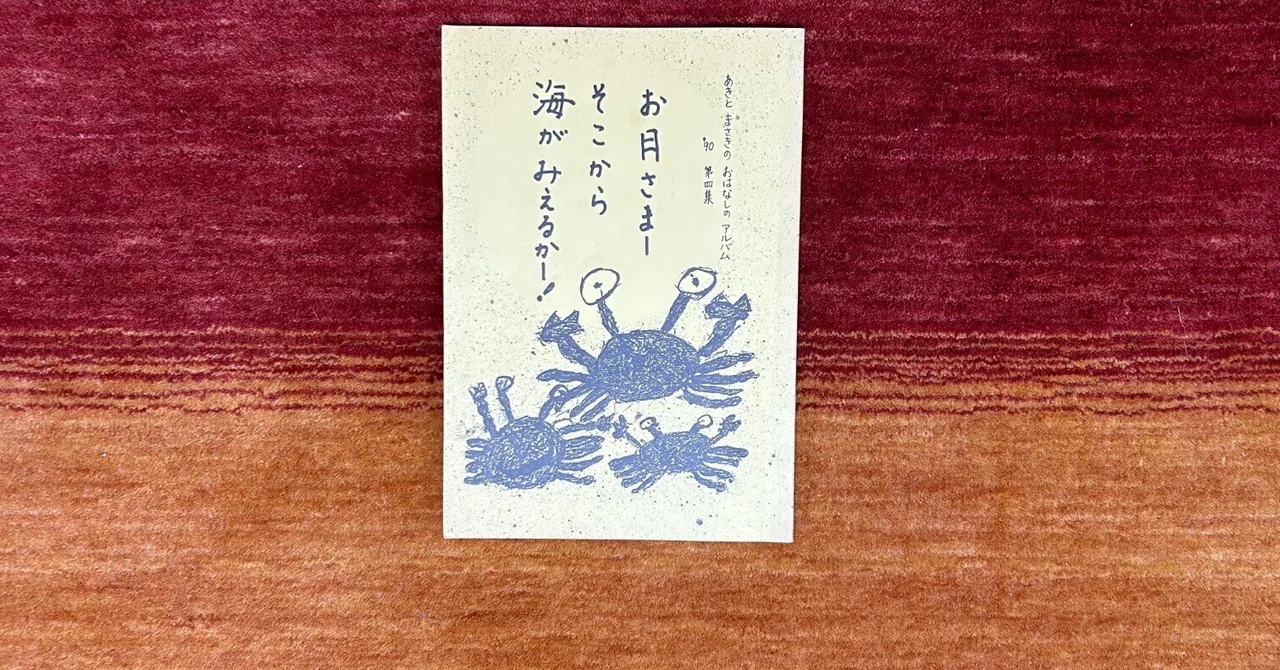 あきと まさきの おはなしの アルバム
'90 第四集
お月さまー
そこから
海がみえるかー!